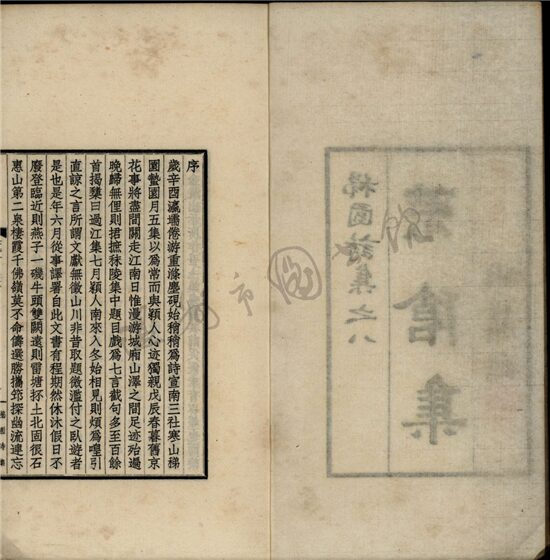 稊園詩集之八
滄集
序
歲辛酉瀛壖倦游重滌塵硯始稍稍為詩宣南三社寒山稊
園蟄園月五集以為常而與穎人心迹獨親戊辰春暮舊京
花事將盡間關走江南日惟漫游城廂山澤之間足迹殆遍
晚歸無俚則捃摭秣陵集中題目戲為七言截句多至百餘
首揭櫫曰過江集七月穎人南來入冬始相見則頗為喤引
直諒之言所謂文獻無徵山川非昔取題微濫付之臥遊者
是也是年六月從事譯署自此文書有程期然休沐假日不
廢登臨近則燕子一磯牛頭雙闕遠則雷塘抔土北固很石
惠山第二泉棲霞千佛嶺莫不命儔選勝攜笻探幽流連忘